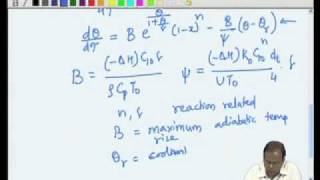 dθ/dτ = B e^{θ/(1+θ/γ)} (1-x)^n - B/ψ (θ-θ_r) ←
B = (-ΔH) C_{10} γ / ρ C_p T_0   ψ = (-ΔH) k_0 C_{10}^n / U T_0 · d_t/4 · γ
n, γ reaction related
B = maximum adiabatic temp
rise
θ_r =